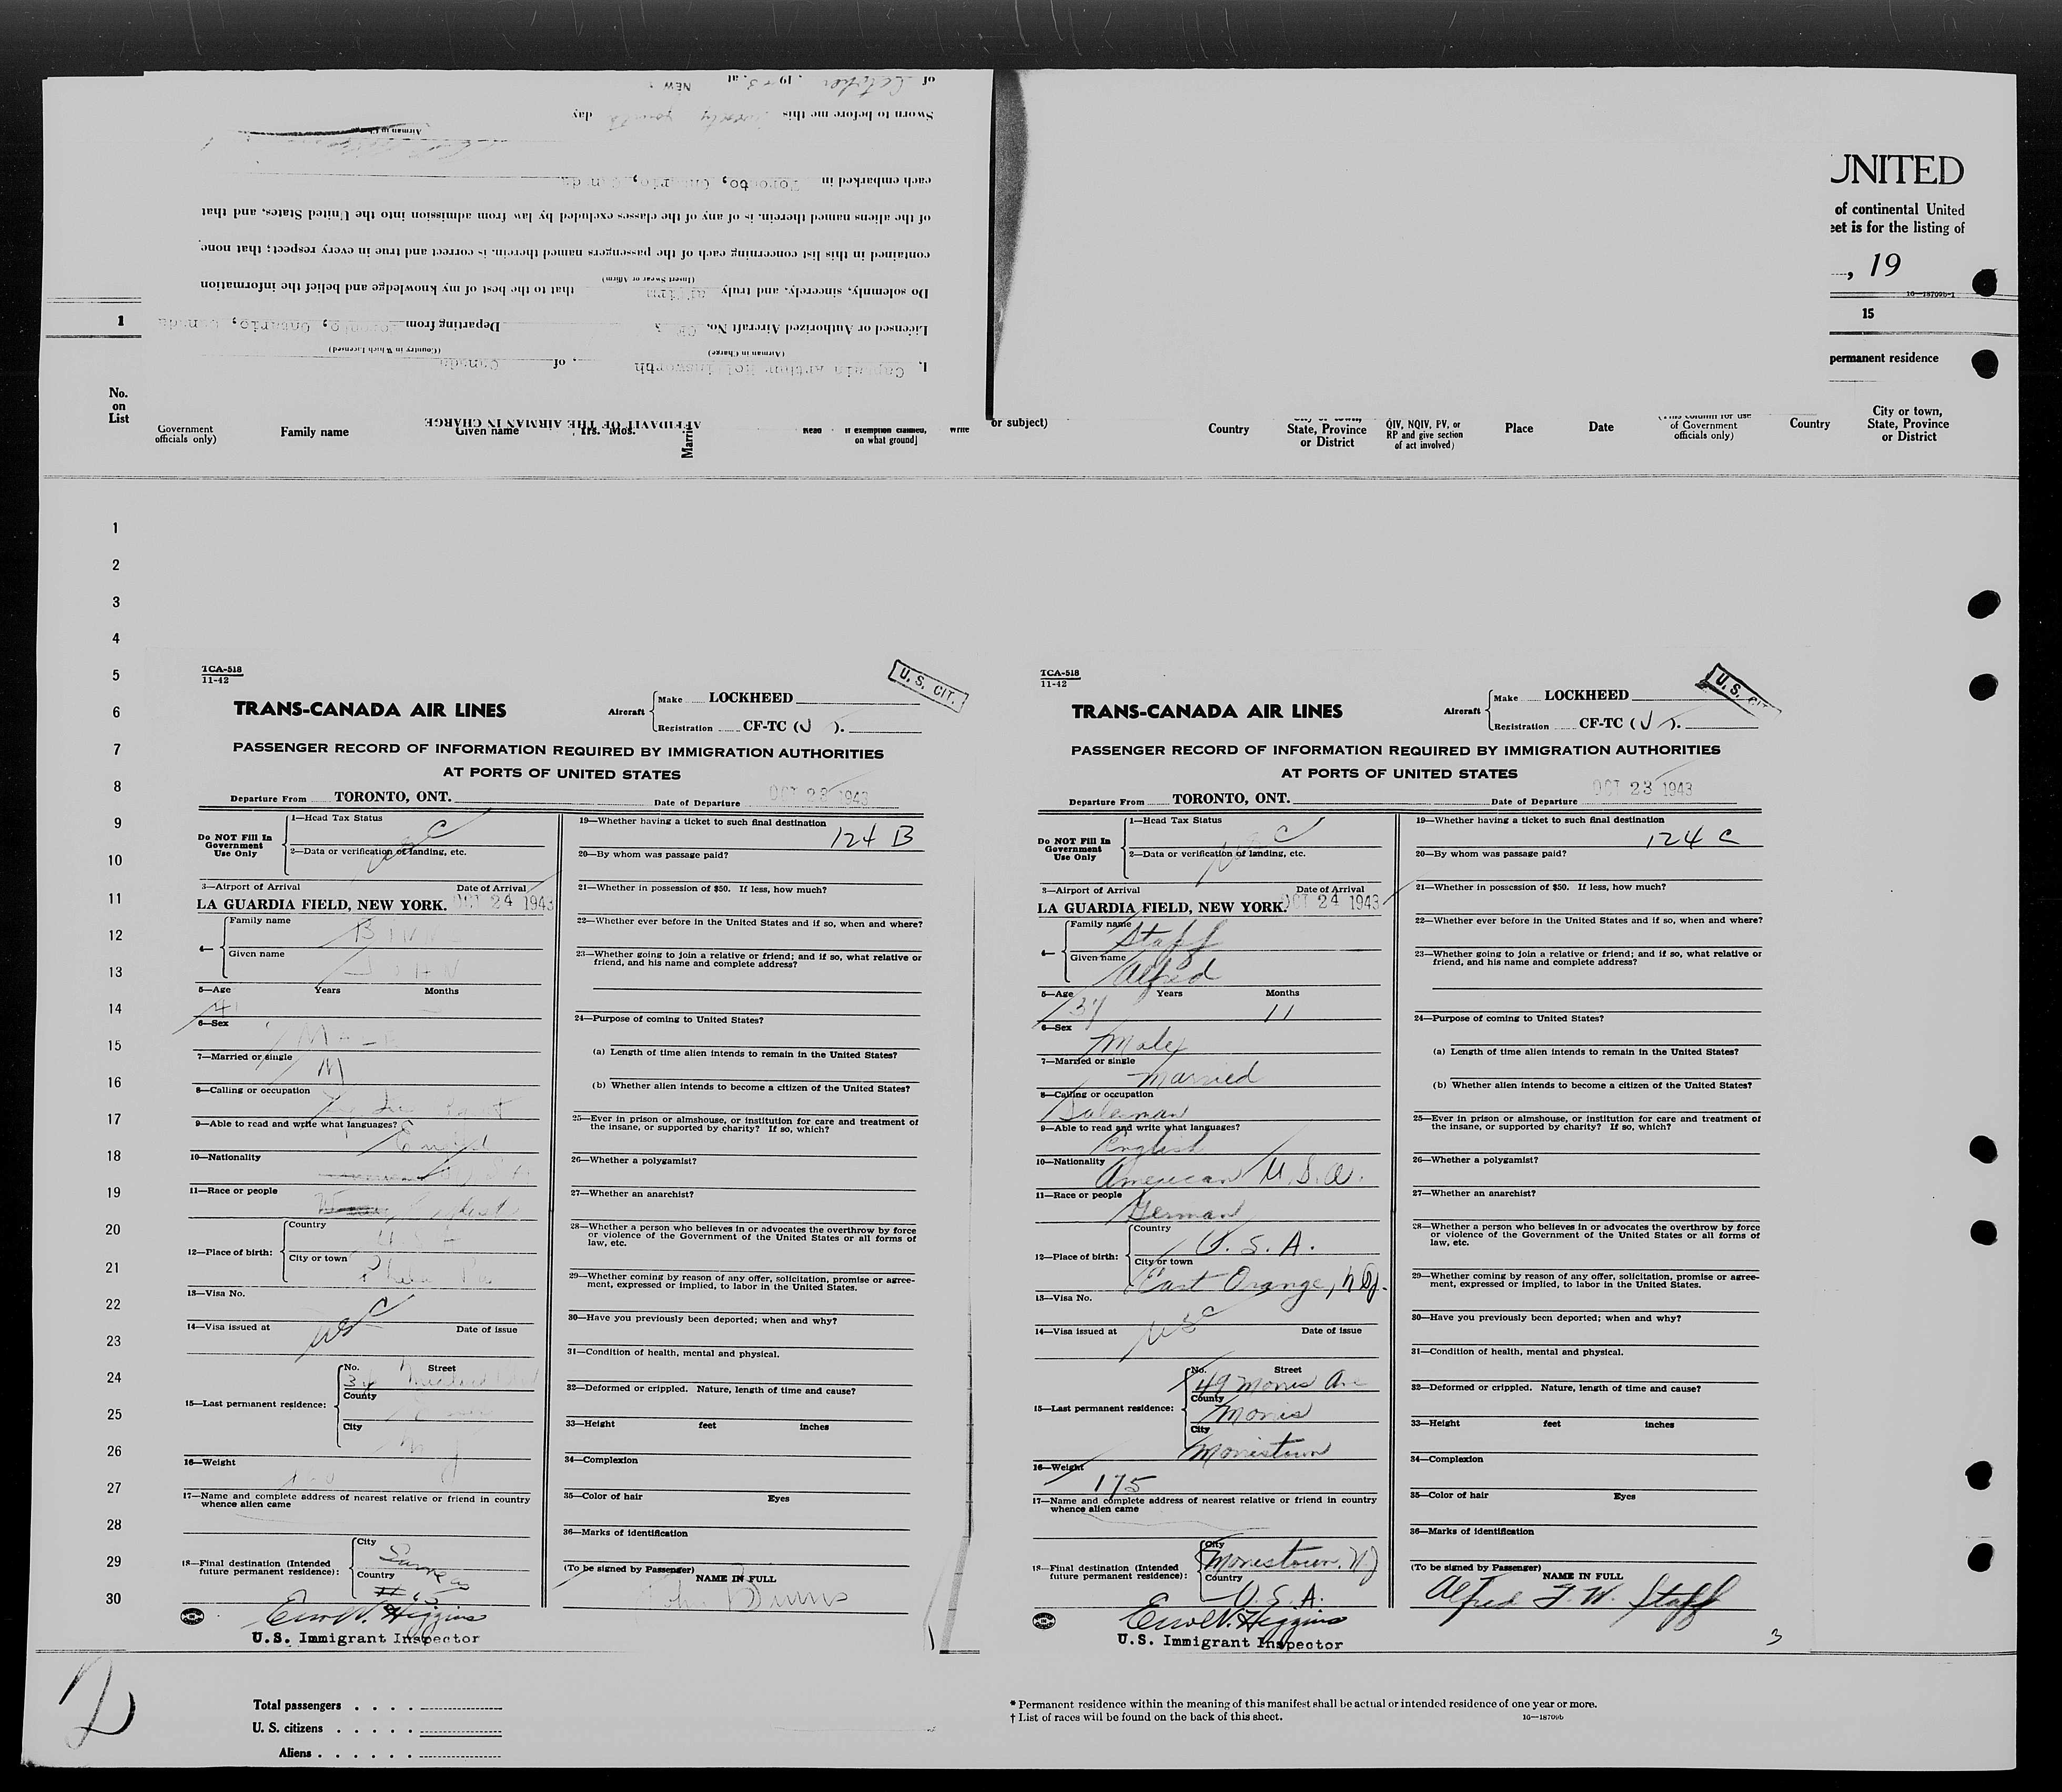 of October, 1943, at NEW
Sworn to before me this twenty fourth day
Airman in Charge
each embarked in Toronto, Ontario, Canada
of the aliens named therein, is of any of the classes excluded by law from admission into the United States, and that
contained in this list concerning each of the passengers named therein, is correct and true in every respect; that none
(Insert Swear or Affirm)
Do solemnly, sincerely, and truly affirm that to the best of my knowledge and belief the information
Licensed or Authorized Aircraft No. CF Departing from Toronto, Ontario, Canada
(Airman in Charge) (Country in Which Licensed)
I, Captain Arthur Hollinsworth, of Canada
AFFIDAVIT OF THE AIRMAN IN CHARGE
UNITED
of continental United
eet is for the listing of
, 19
16—18709b-1
1
15
permanent residence
No.
on
List
Government
officials only)
Family name
Given name
Yrs. Mos.
Married
Read
If exemption claimed,
on what ground]
Write
or subject)
Country
City or town,
State, Province
or District
QIV, NQIV, PV, or
RP and give section
of act involved)
Place
Date
(This column for use
of Government
officials only)
Country
City or town,
State, Province
or District
1
2
3
4
5
6
7
8
9
10
11
12
13
14
15
16
17
18
19
20
21
22
23
24
25
26
27
28
29
30
TCA-518
11-42
U. S. CIT.
TRANS-CANADA AIR LINES
Aircraft
Make LOCKHEED
Registration CF-TC (J).
PASSENGER RECORD OF INFORMATION REQUIRED BY IMMIGRATION AUTHORITIES
AT PORTS OF UNITED STATES
Departure From TORONTO, ONT. Date of Departure OCT 23 1943
Do NOT Fill In
Government
Use Only
1—Head Tax Status
USC
2—Data or verification of landing, etc.
3—Airport of Arrival Date of Arrival
LA GUARDIA FIELD, NEW YORK. OCT 24 1943
4—
Family name
Given name JOHN
5—Age Years Months
6—Sex
MALE
7—Married or single
M
8—Calling or occupation
9—Able to read and write what languages?
English
10—Nationality
11—Race or people
12—Place of birth:
Country
USA
City or town
Phila Pa
13—Visa No.
USC
14—Visa issued at Date of issue
15—Last permanent residence:
No. Street
County
Essex
City
16—Weight
17—Name and complete address of nearest relative or friend in country
whence alien came
18—Final destination (Intended
future permanent residence):
City
Same as
Country
# 15
Erwin N. Higgins
U.S. Immigrant Inspector
19—Whether having a ticket to such final destination
124 B
20—By whom was passage paid?
21—Whether in possession of $50. If less, how much?
22—Whether ever before in the United States and if so, when and where?
23—Whether going to join a relative or friend; and if so, what relative or
friend, and his name and complete address?
24—Purpose of coming to United States?
(a) Length of time alien intends to remain in the United States?
(b) Whether alien intends to become a citizen of the United States?
25—Ever in prison or almshouse, or institution for care and treatment of
the insane, or supported by charity? If so, which?
26—Whether a polygamist?
27—Whether an anarchist?
28—Whether a person who believes in or advocates the overthrow by force
or violence of the Government of the United States or all forms of
law, etc.
29—Whether coming by reason of any offer, solicitation, promise or agree-
ment, expressed or implied, to labor in the United States.
30—Have you previously been deported; when and why?
31—Condition of health, mental and physical.
32—Deformed or crippled. Nature, length of time and cause?
33—Height feet inches
34—Complexion
35—Color of hair Eyes
36—Marks of identification
(To be signed by Passenger)
NAME IN FULL
John Binns
TCA-518
11-42
U. S. CIT.
TRANS-CANADA AIR LINES
Aircraft
Make LOCKHEED
Registration CF-TC (J).
PASSENGER RECORD OF INFORMATION REQUIRED BY IMMIGRATION AUTHORITIES
AT PORTS OF UNITED STATES
Departure From TORONTO, ONT. Date of Departure OCT 23 1943
Do NOT Fill In
Government
Use Only
1—Head Tax Status
USC
2—Data or verification of landing, etc.
3—Airport of Arrival Date of Arrival
LA GUARDIA FIELD, NEW YORK. OCT 24 1943
4—
Family name
Staff
Given name
Alfred
5—Age Years Months
37 11
6—Sex
Male
7—Married or single
Married
8—Calling or occupation
Salesman
9—Able to read and write what languages?
English
10—Nationality
American U.S.A.
11—Race or people
German
12—Place of birth:
Country
U.S.A.
City or town
East Orange, N.J.
13—Visa No.
USC
14—Visa issued at Date of issue
15—Last permanent residence:
No. Street
49 Morris Ave
County
Morris
City
Morristown
16—Weight
175
17—Name and complete address of nearest relative or friend in country
whence alien came
18—Final destination (Intended
future permanent residence):
City
Morristown, NJ
Country
U.S.A.
Erwin N. Higgins
U.S. Immigrant Inspector
19—Whether having a ticket to such final destination
124 C
20—By whom was passage paid?
21—Whether in possession of $50. If less, how much?
22—Whether ever before in the United States and if so, when and where?
23—Whether going to join a relative or friend; and if so, what relative or
friend, and his name and complete address?
24—Purpose of coming to United States?
(a) Length of time alien intends to remain in the United States?
(b) Whether alien intends to become a citizen of the United States?
25—Ever in prison or almshouse, or institution for care and treatment of
the insane, or supported by charity? If so, which?
26—Whether a polygamist?
27—Whether an anarchist?
28—Whether a person who believes in or advocates the overthrow by force
or violence of the Government of the United States or all forms of
law, etc.
29—Whether coming by reason of any offer, solicitation, promise or agree-
ment, expressed or implied, to labor in the United States.
30—Have you previously been deported; when and why?
31—Condition of health, mental and physical.
32—Deformed or crippled. Nature, length of time and cause?
33—Height feet inches
34—Complexion
35—Color of hair Eyes
36—Marks of identification
(To be signed by Passenger)
NAME IN FULL
Alfred F. W. Staff
3
2
Total passengers
U. S. citizens
Aliens
* Permanent residence within the meaning of this manifest shall be actual or intended residence of one year or more.
† List of races will be found on the back of this sheet.
16—18709b